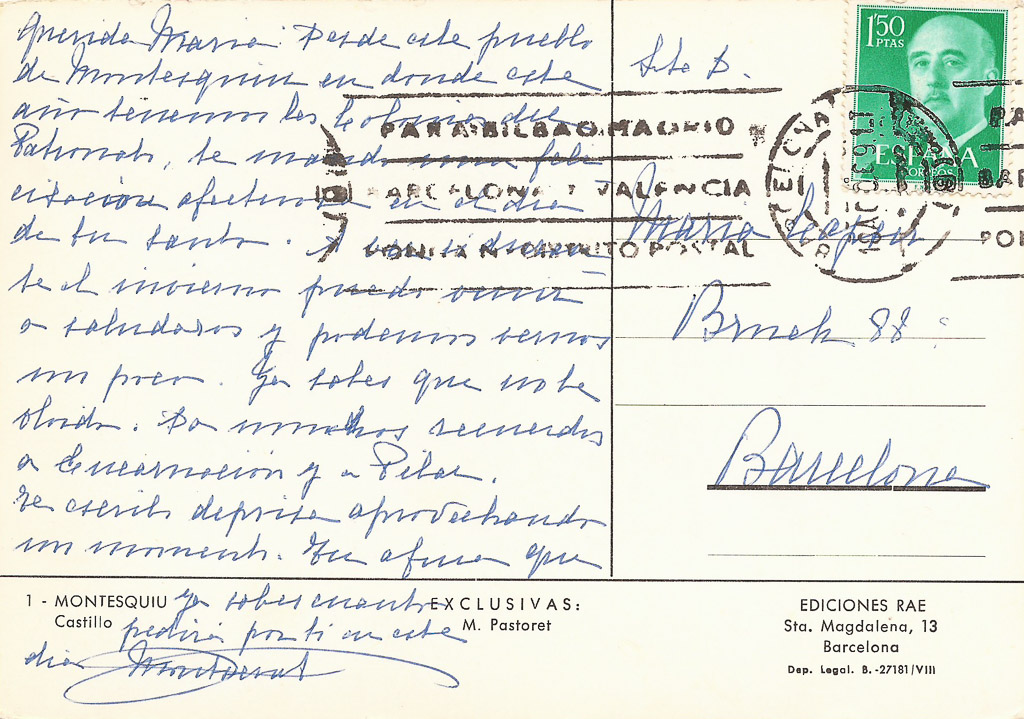 Querida Maria: Desde este pueblo
de Montesquiu en donde este
año tenemos las Colonias del
Patronato, te mando una feli
citación afectuosa en el dia
de tu santo. A
te el invierno puedo venir
a saludaros y podemos vernos
un poco. Ya sabes que no te
olvido. Da muchos recuerdos
a Encarnación y a Pilar.
Te escribo deprisa aprovechando
un momento. Tu afma que
ya sabes cuanto
pedirá por ti en este
dia Montserrat
Srta D.
Maria
Bruch 88
Barcelona
1'50
PTAS
ESPAÑA
CORREOS
PARA BILBAO MADRID
BARCELONA Y VALENCIA
PONGA Nº DISTRITO POSTAL
BARCELONA
1 - MONTESQUIU
Castillo
EXCLUSIVAS:
M. Pastoret
EDICIONES RAE
Sta. Magdalena, 13
Barcelona
Dep. Legal. B.-27181/VIII